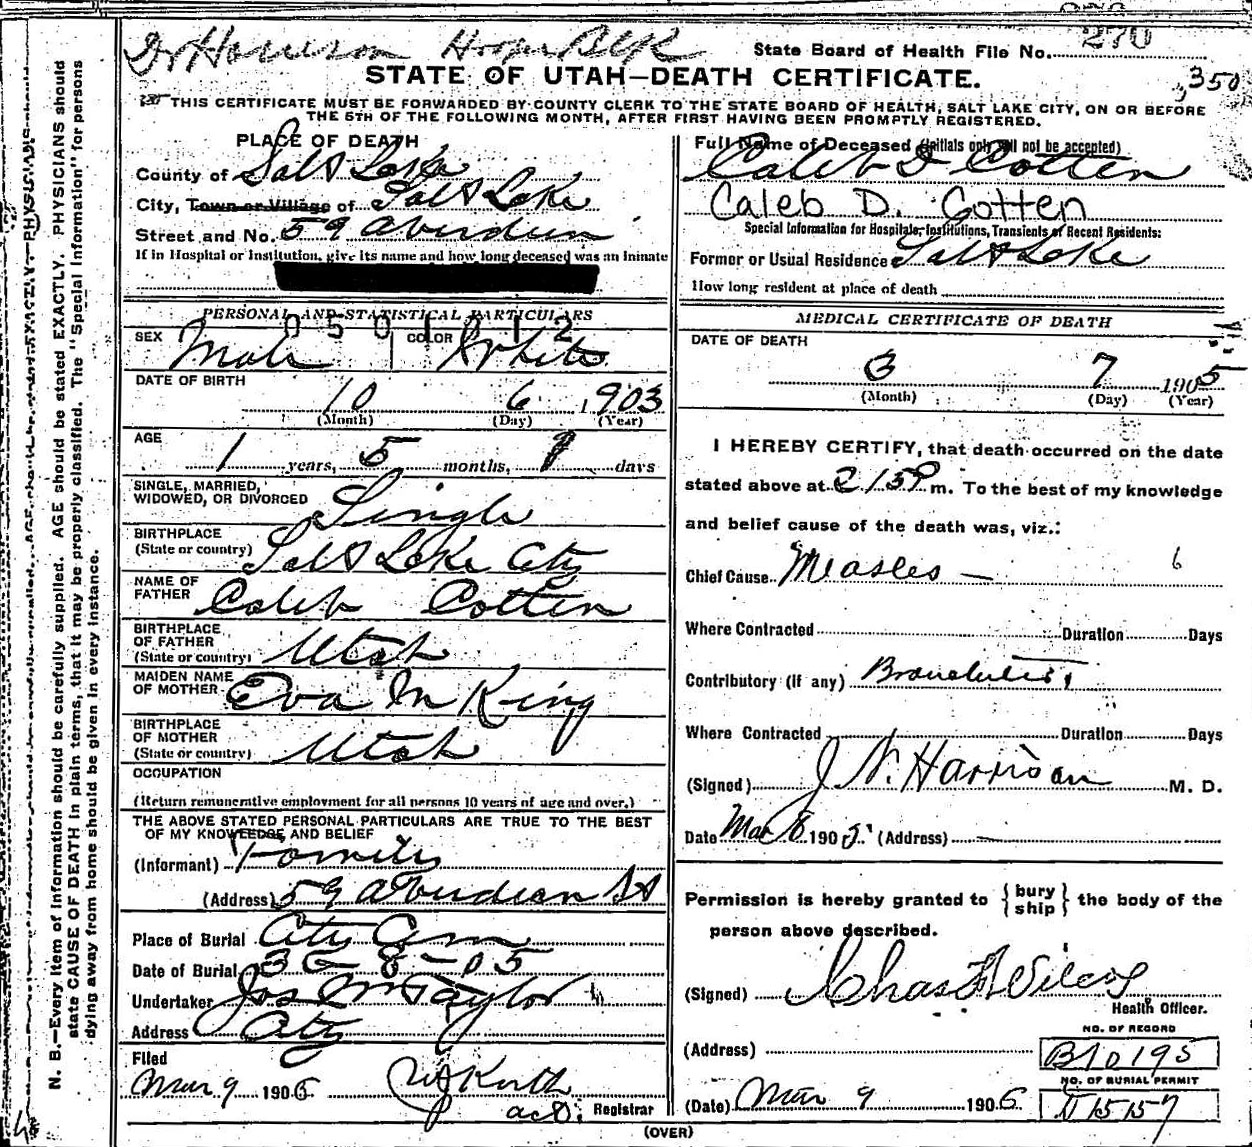 Dr Harrison
State Board of Health File No. 270
350
STATE OF UTAH—DEATH CERTIFICATE.
THIS CERTIFICATE MUST BE FORWARDED BY COUNTY CLERK TO THE STATE BOARD OF HEALTH, SALT LAKE CITY, ON OR BEFORE
THE 5TH OF THE FOLLOWING MONTH, AFTER FIRST HAVING BEEN PROMPTLY REGISTERED.
PLACE OF DEATH
County of Salt Lake
City, Town or Village of Salt Lake
Street and No. 59 Aberdeen
If in Hospital or Institution, give its name and how long deceased was an inmate
PERSONAL AND STATISTICAL PARTICULARS
0 5 0 1 0 1 2
SEX Male COLOR White
DATE OF BIRTH
10 6 1903
(Month) (Day) (Year)
AGE
1 years, 5 months, 1 days
SINGLE, MARRIED,
WIDOWED, OR DIVORCED Single
BIRTHPLACE
(State or country) Salt Lake City
NAME OF
FATHER Caleb Cotten
BIRTHPLACE
OF FATHER
(State or country) Utah
MAIDEN NAME
OF MOTHER Eva M King
BIRTHPLACE
OF MOTHER
(State or country) Utah
OCCUPATION
(Return remunerative employment for all persons 10 years of age and over.)
THE ABOVE STATED PERSONAL PARTICULARS ARE TRUE TO THE BEST
OF MY KNOWLEDGE AND BELIEF
(Informant) Family
(Address) 59 Aberdean St
Place of Burial City Cem
Date of Burial 3-8-05
Undertaker Jos Wm Taylor
Address City
Filed
Mar 9 1905
Registrar
Full Name of Deceased (Initials only will not be accepted)
Caleb D Cotten
Caleb D. Cotten
Special Information for Hospitals, Institutions, Transients or Recent Residents:
Former or Usual Residence Salt Lake
How long resident at place of death
MEDICAL CERTIFICATE OF DEATH
DATE OF DEATH
3 7 1905
(Month) (Day) (Year)
I HEREBY CERTIFY, that death occurred on the date
stated above at 2 15 P m. To the best of my knowledge
and belief cause of the death was, viz.:
Chief Cause Measles — 6
Where Contracted Duration Days
Contributory (if any) Bronchitis
Where Contracted Duration Days
(Signed) J N. Harrison M. D.
Date Mar 8 1905. (Address)
Permission is hereby granted to { bury ship } the body of the
person above described.
(Signed) Chas F Wilcox
Health Officer.
NO. OF RECORD
(Address) B10195
NO. OF BURIAL PERMIT
(Date) Mar 9 1905
(OVER)
N. B.—Every item of information should be carefully supplied. AGE should be stated EXACTLY. PHYSICIANS should
state CAUSE OF DEATH in plain terms, that it may be properly classified. The "Special Information" for persons
dying away from home should be given in every instance.